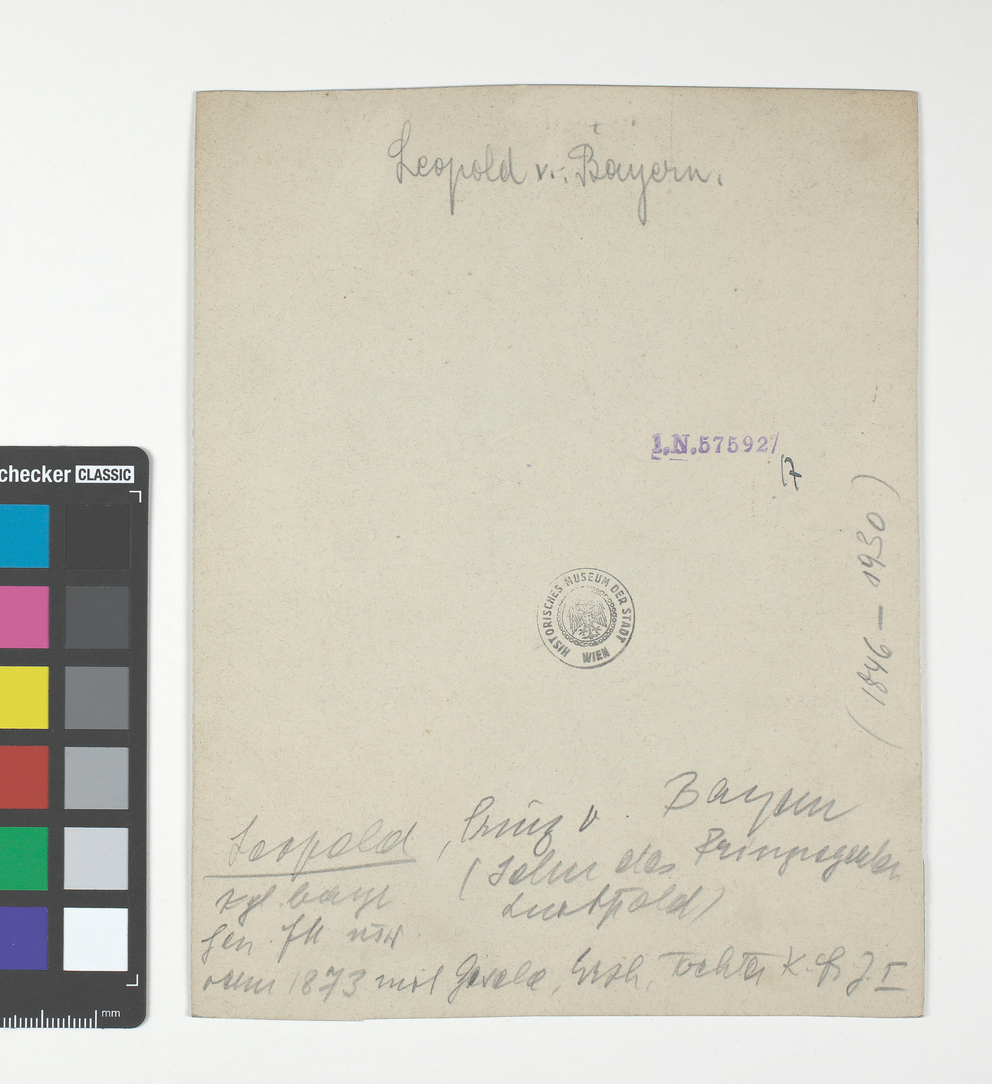 Leopold v. Bayern.
I.N.57592/
17
HISTORISCHES MUSEUM DER STADT WIEN
(1846 – 1930)
Leopold, Prinz v. Bayern
(Sohn des Prinzregenten
Luitpold)
kgl. bayr
Gen. FM usw
verm 1873 mit Gisela, Erzh., Tochter K. Fr J. I
checker CLASSIC
mm